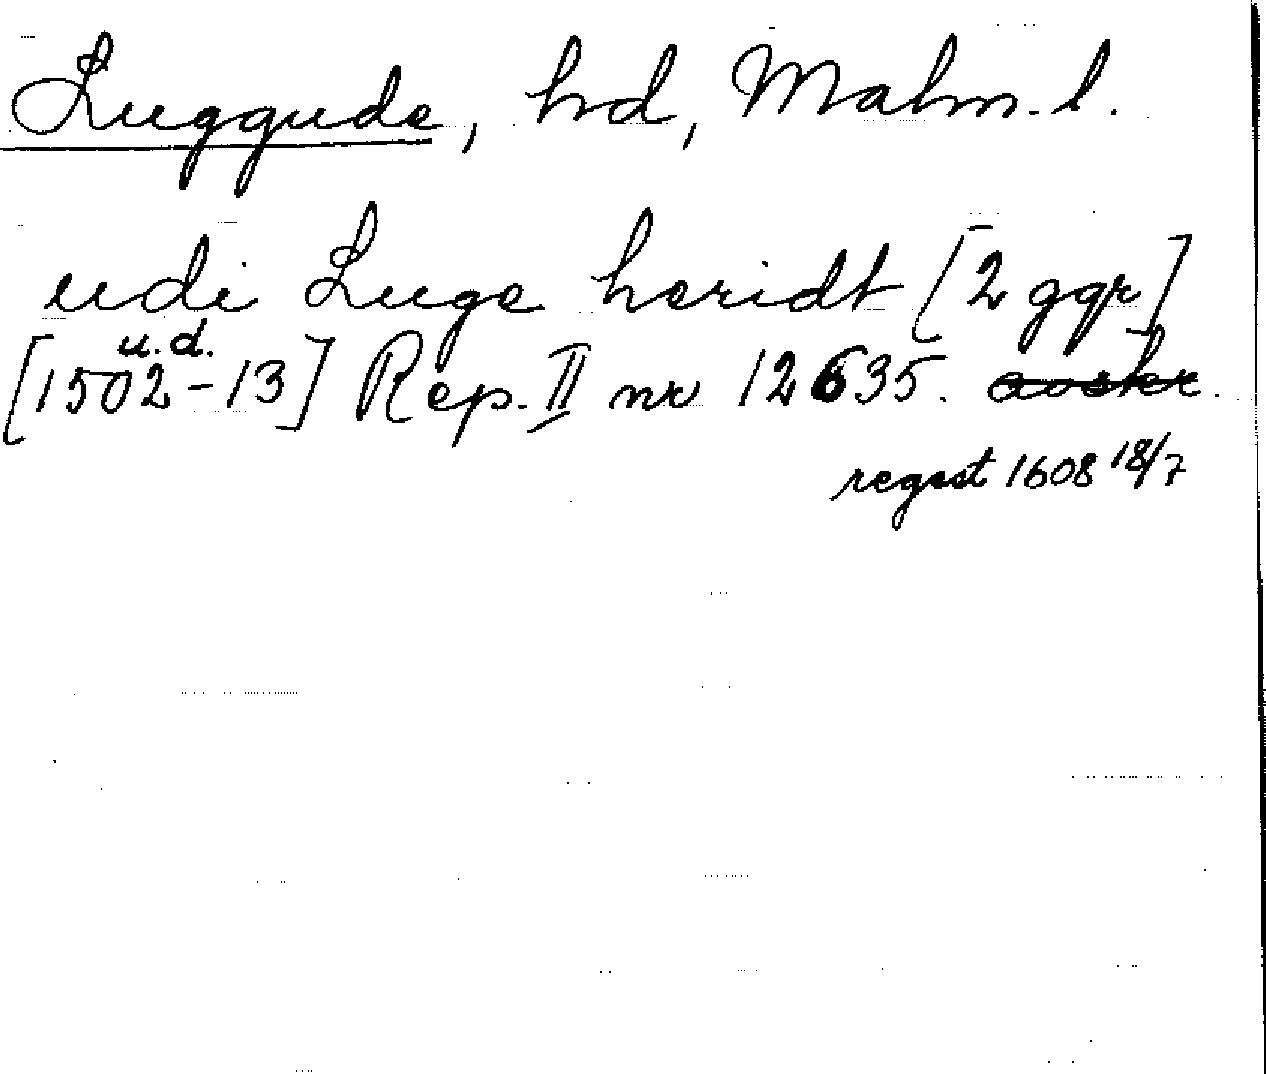 Luggude, hd, Malm. l.
udi Luge heridt [2 ggr]
u.d.
[1502-13] Rep. II nr 12635. avskr.
regest 1608 18/7